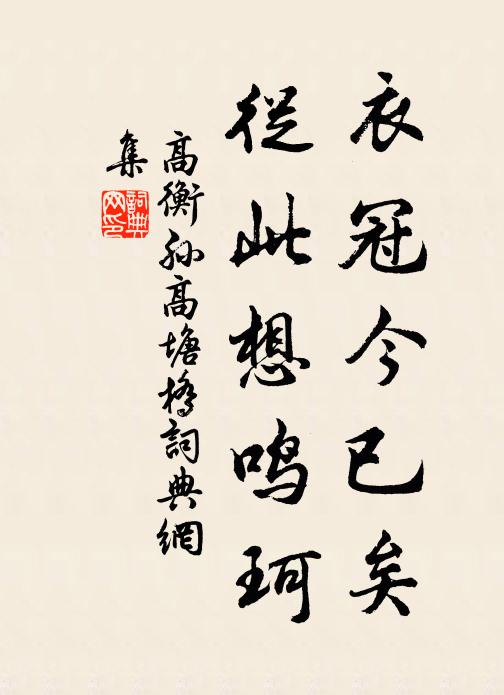 衣冠今已矣
從此想鳴珂
高衡孙高塘橋詞典網
集
詞典网印